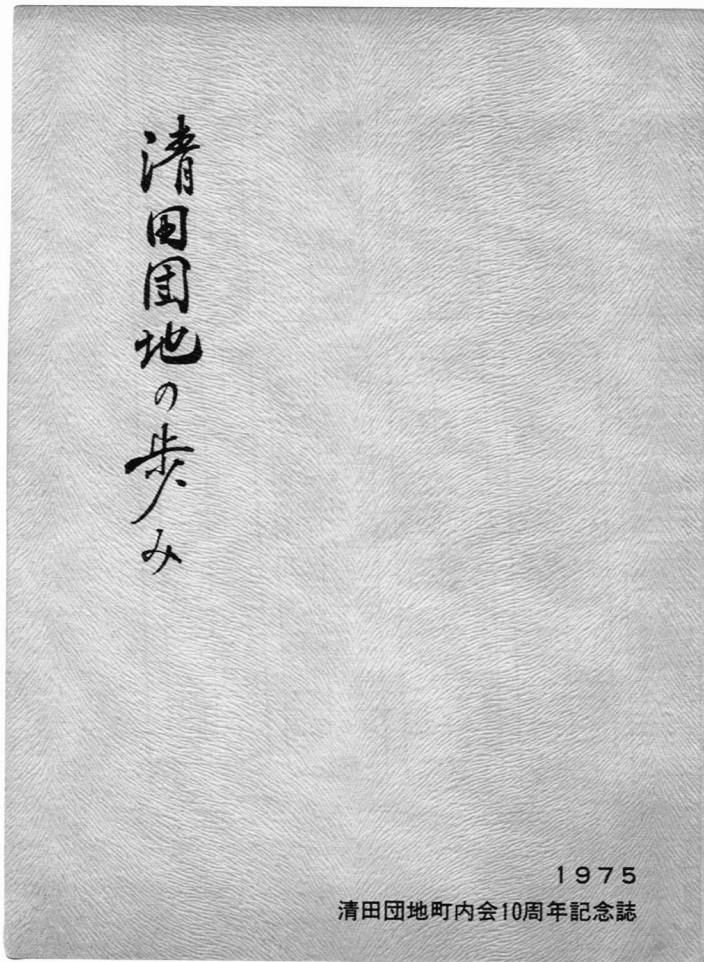 清田団地の歩み
1975
清田団地町内会10周年記念誌